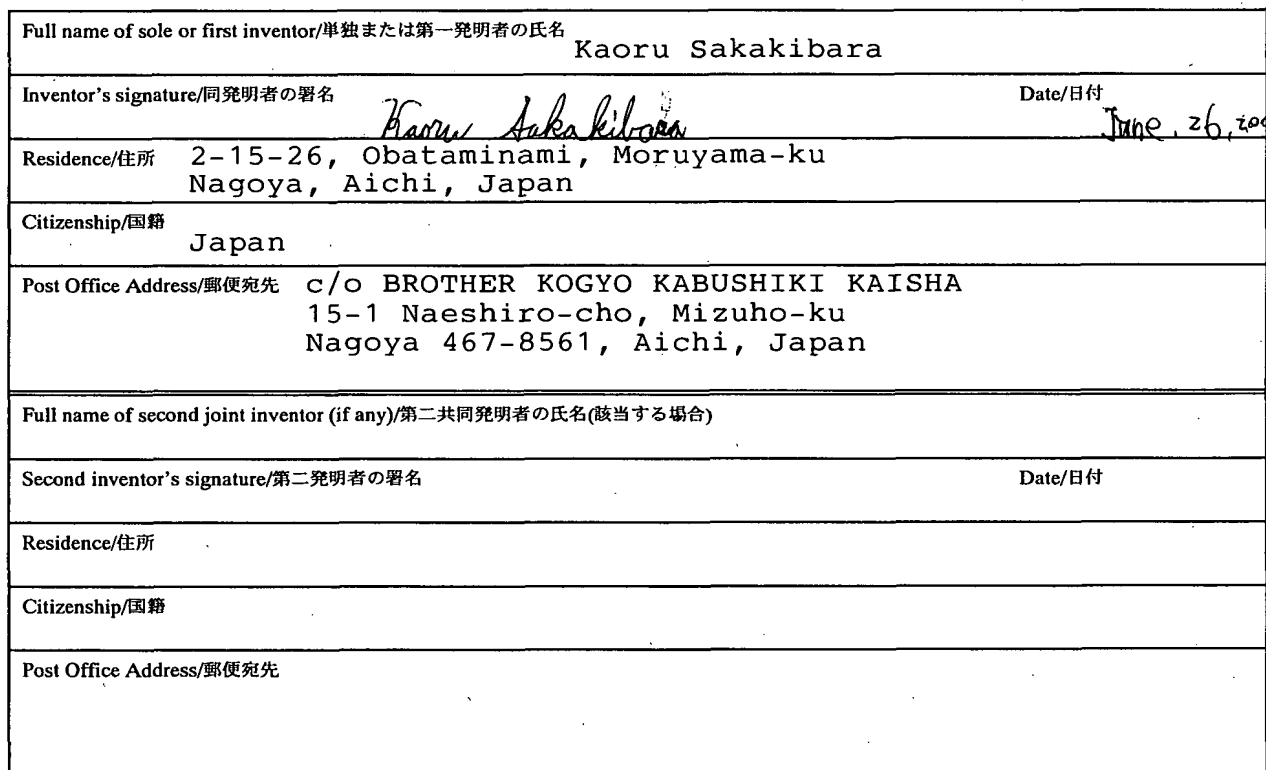 Full name of sole or first inventor/単独または第一発明者の氏名 Kaoru Sakakibara
Inventor's signature/同発明者の署名 Kaoru Sakakibara Date/日付 June, 26,
Residence/住所 2-15-26, Obataminami, Moruyama-ku
Nagoya, Aichi, Japan
Citizenship/国籍
Japan
Post Office Address/郵便宛先 c/o BROTHER KOGYO KABUSHIKI KAISHA
15-1 Naeshiro-cho, Mizuho-ku
Nagoya 467-8561, Aichi, Japan
Full name of second joint inventor (if any)/第二共同発明者の氏名(該当する場合)
Second inventor's signature/第二発明者の署名 Date/日付
Residence/住所
Citizenship/国籍
Post Office Address/郵便宛先